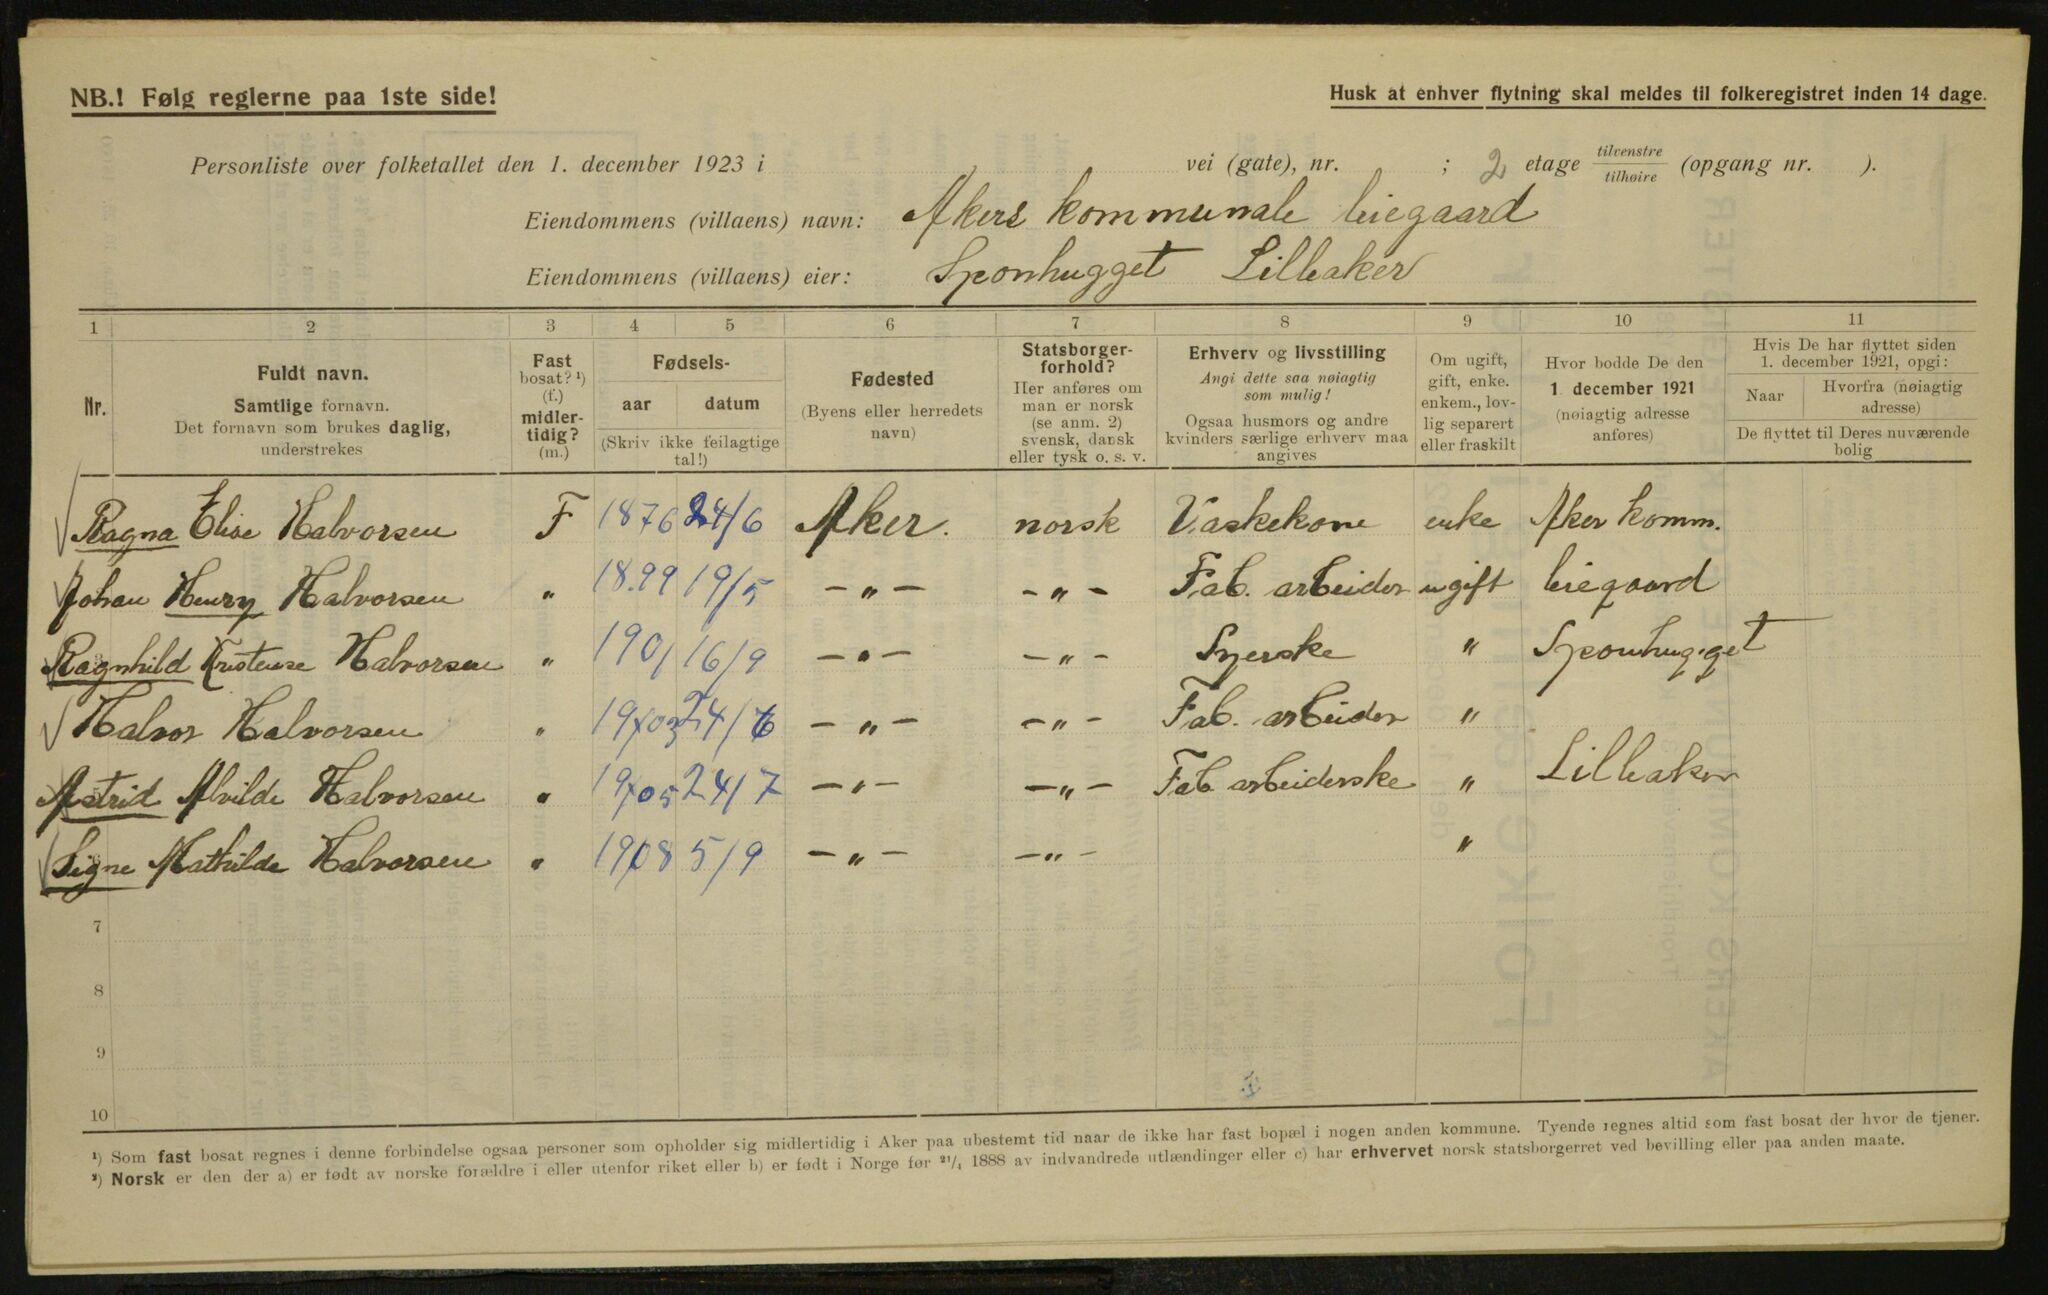 NB.! Følg reglerne paa 1ste side!
Husk at enhver flytning skal meldes til folkeregistret inden 14 dage.
Personliste over folketallet den 1. december 1923 i vei (gate), nr. ; 2 etage tilvenstre / tilhøire (opgang nr. ).
Eiendommens (villaens) navn: Akers kommunale leiegaard
Eiendommens (villaens) eier: Sponhugget Lilleaker
1 2 3 4 5 6 7 8 9 10 11
Nr.
Fuldt navn.
Samtlige fornavn.
Det fornavn som brukes daglig,
understrekes
Fast
bosat? ¹)
(f.)
midler-
tidig?
(m.)
Fødsels-
aar datum
(Skriv ikke feilagtige
tal!)
Fødested
(Byens eller herredets
navn)
Statsborger-
forhold?
Her anføres om
man er norsk
(se anm. 2)
svensk, dansk
eller tysk o. s. v.
Erhverv og livsstilling
Angi dette saa nøiagtig
som mulig!
Ogsaa husmors og andre
kvinders særlige erhverv maa
angives
Om ugift,
gift, enke.
enkem., lov-
lig separert
eller fraskilt
Hvor bodde De den
1 december 1921
(nøiagtig adresse
anføres)
Hvis De har flyttet siden
1. december 1921, opgi:
Naar Hvorfra (nøiagtig
adresse)
De flyttet til Deres nuværende
bolig
Ragna Elise Halvorsen F 1876 24/6 Aker. norsk Vaskekone enke Aker komm.
Johan Henry Halvorsen " 18.99 19/5 – " – – " – Fab. arbeider ugift leiegaard
Ragnhild Kristense Halvorsen " 1901 16/9 – " – – " – Syerske " Sponhugget
Halvor Halvorsen " 1903 24/6 – " – – " – Fab. arbeider "
Astrid Alvilde Halvorsen " 1905 24/7 – " – – " – Fab arbeiderske " Lilleaker
Signe Mathilde Halvorsen " 1908 5/9 – " – – " – "
7
8
9
10
¹) Som fast bosat regnes i denne forbindelse ogsaa personer som opholder sig midlertidig i Aker paa ubestemt tid naar de ikke har fast bopæl i nogen anden kommune. Tyende regnes altid som fast bosat der hvor de tjener.
²) Norsk er den der a) er født av norske forældre i eller utenfor riket eller b) er født i Norge før ²¹/₄ 1888 av indvandrede utlændinger eller c) har erhvervet norsk statsborgerret ved bevilling eller paa anden maate.